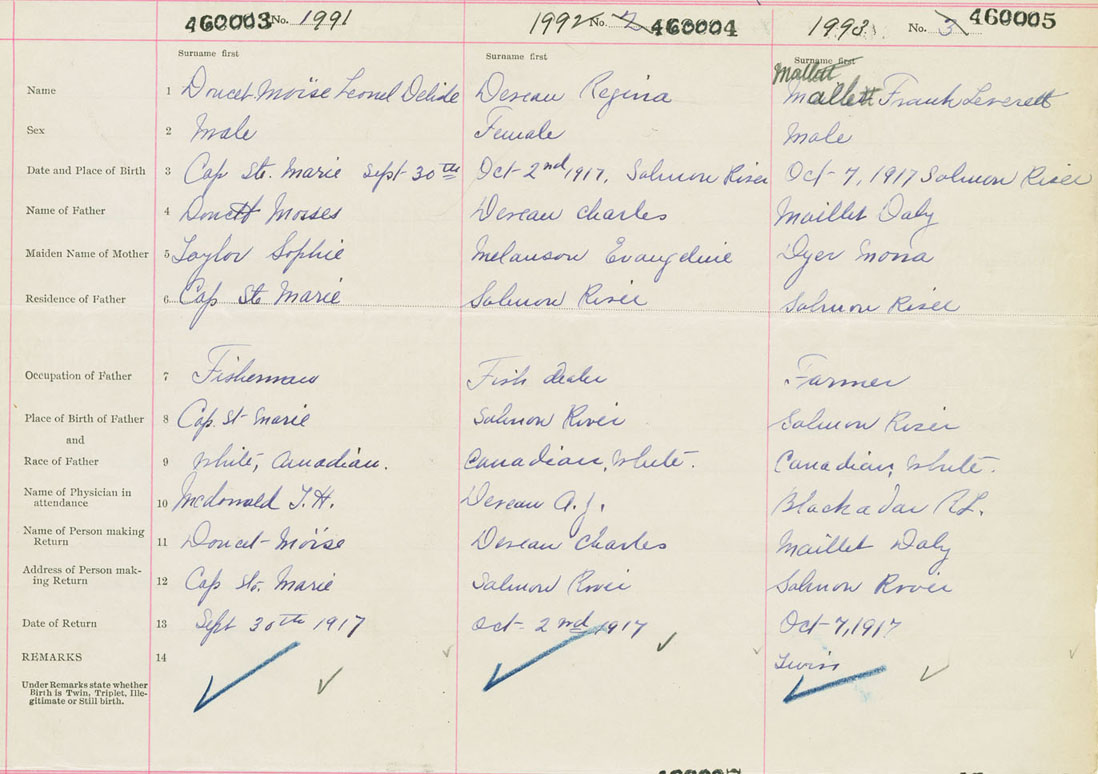 460003 No. 1991 1992 No. 2 460004 1993 No. 3 460005
Surname first Surname first Surname first
Mallett
Name 1 Doucet Moïse Leonel Delisle Deveau Regina Mallett Frank Leverett
Sex 2 Male Female Male
Date and Place of Birth 3 Cap Ste. Marie Sept 30th Oct 2nd 1917, Salmon River Oct 7, 1917 Salmon River
Name of Father 4 Doucett Moises Deveau Charles Maillet Daly
Maiden Name of Mother 5 Taylor Sophie Melanson Evangeline Dyer Mona
Residence of Father 6 Cap Ste Marie Salmon River Salmon River
Occupation of Father 7 Fisherman Fish dealer Farmer
Place of Birth of Father 8 Cap. St Marie Salmon River Salmon River
and
Race of Father 9 White, Canadian. Canadian, White. Canadian, White.
Name of Physician in
attendance 10 McDonald T. H. Deveau A. J. Blackadar R L.
Name of Person making
Return 11 Doucet Moïse Deveau Charles Maillet Daly
Address of Person mak-
ing Return 12 Cap Ste. Marie Salmon River Salmon River
Date of Return 13 Sept 30th 1917 Oct 2nd 1917 Oct 7, 1917
REMARKS 14 Twins
Under Remarks state whether
Birth is Twin, Triplet, Ille-
gitimate or Still birth.